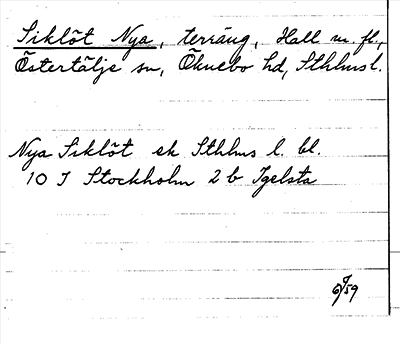 Siklöt Nya, terräng, Hall m. fl.,
Östertälje sn, Öknebo hd, Sthlms l.
Nya Siklöt ek Sthlms l. bl.
10 I Stockholm 2 b Igelsta